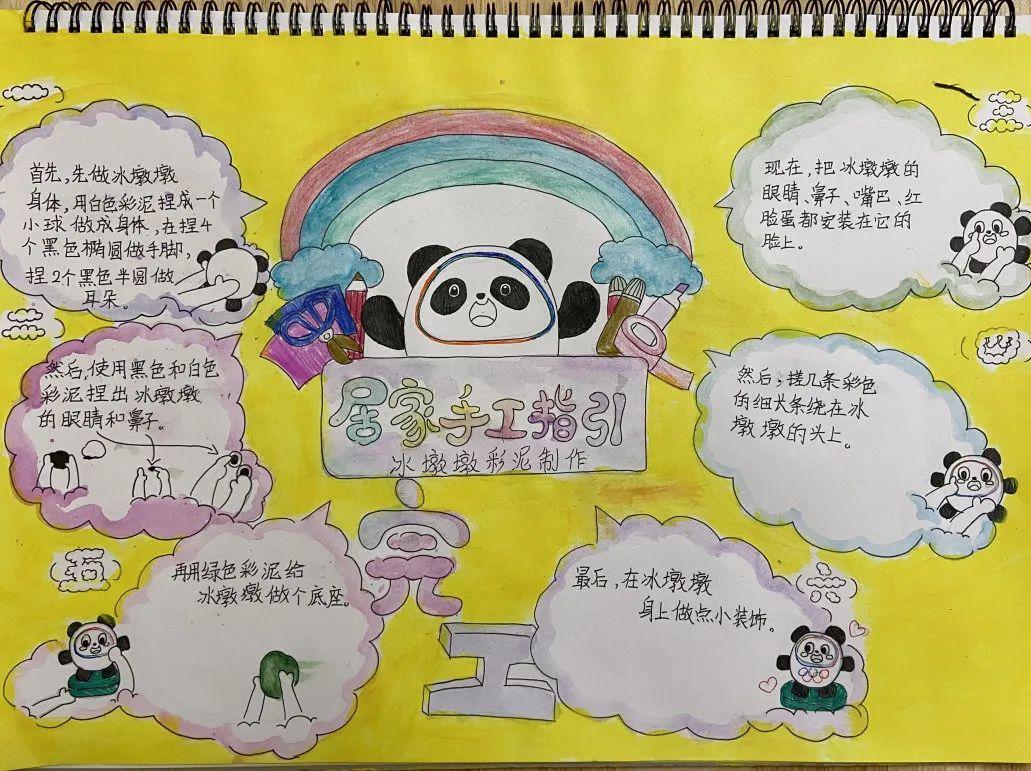 居家手工指引
冰墩墩彩泥制作
一
首先,先做冰墩墩
身体,用白色彩泥捏成一个
小球做成身体,在捏4
个黑色椭圆做手脚,
捏2个黑色半圆做
耳朵。
二
然后,使用黑色和白色
彩泥捏出冰墩墩
的眼睛和鼻子。
三
现在,把冰墩墩的
眼睛、鼻子、嘴巴、红
脸蛋都安装在它的
脸上。
四
然后,搓几条彩色
的细长条绕在冰
墩墩的头上。
五
再用绿色彩泥给
冰墩墩做个底座。
六
最后,在冰墩墩
身上做点小装饰。
完
工